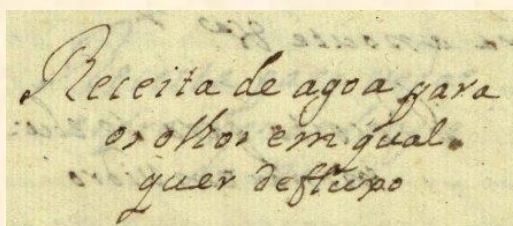 Receita de agoa para
os olhos em qual-
quer defluxo